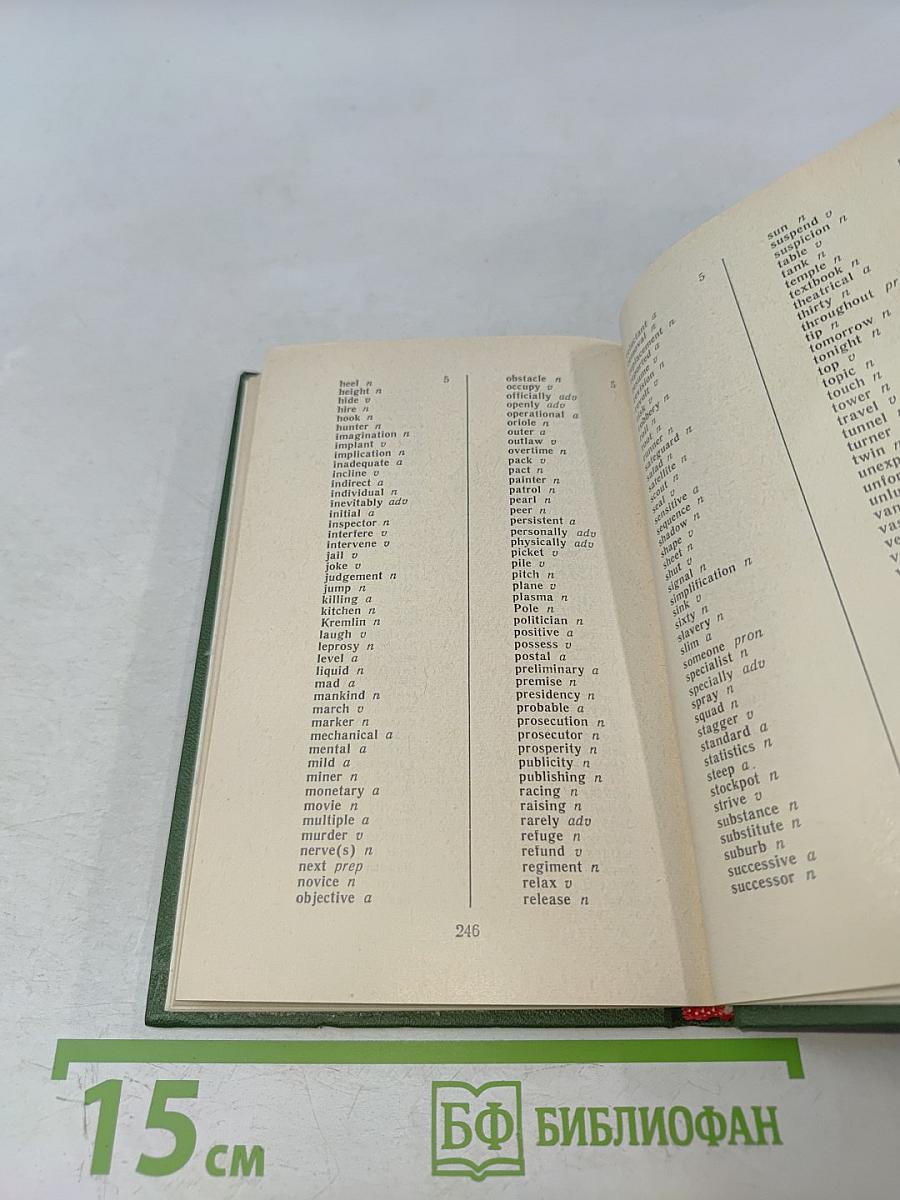 5
heel n
height n
hide v
hire n
hook n
hunter n
imagination n
implant v
implication n
inadequate a
incline v
indirect a
individual n
inevitably adv
initial a
inspector n
interfere v
intervene v
jail v
joke v
judgement n
jump n
killing a
kitchen n
Kremlin n
laugh v
leprosy n
level a
liquid n
mad a
mankind n
march v
marker n
mechanical a
mental a
mild a
miner n
monetary a
movie n
multiple a
murder v
nerve(s) n
next prep
novice n
objective a
5
obstacle n
occupy v
officially adv
openly adv
operational a
oriole n
outer a
outlaw v
overtime n
pack v
pact n
painter n
patrol n
pearl n
peer n
persistent a
personally adv
physically adv
picket v
pile v
pitch n
plane v
plasma n
Pole n
politician n
positive a
possess v
postal a
preliminary a
premise n
presidency n
probable a
prosecution n
prosecutor n
prosperity n
publicity n
publishing n
racing n
raising n
rarely adv
refuge n
refund v
regiment n
relax v
release n
246
5
a
n
n
a
v
n
revolt v
v
robbery n
roll n
root n
runner n
safeguard n
salad n
satellite n
scout n
seal v
sensitive a
sequence n
shadow n
shape v
sheet n
shut v
signal n
simplification n
sink v
sixty n
slavery n
slim a
someone pron
specialist n
specially adv
spray n
squad n
stagger v
standard a
statistics n
steep a.
stockpot n
strive v
substance n
substitute n
suburb n
successive a
successor n
sun n
suspend v
suspicion n
table v
tank n
temple n
textbook n
theatrical a
thirty n
throughout pr
tip n
tomorrow n
tonight n
top v
topic n
touch n
tower n
travel v
tunnel
turner
twin n
unexp
unfor
unlu
van
vas
ve
15 см
БФ БИБЛИОФАН